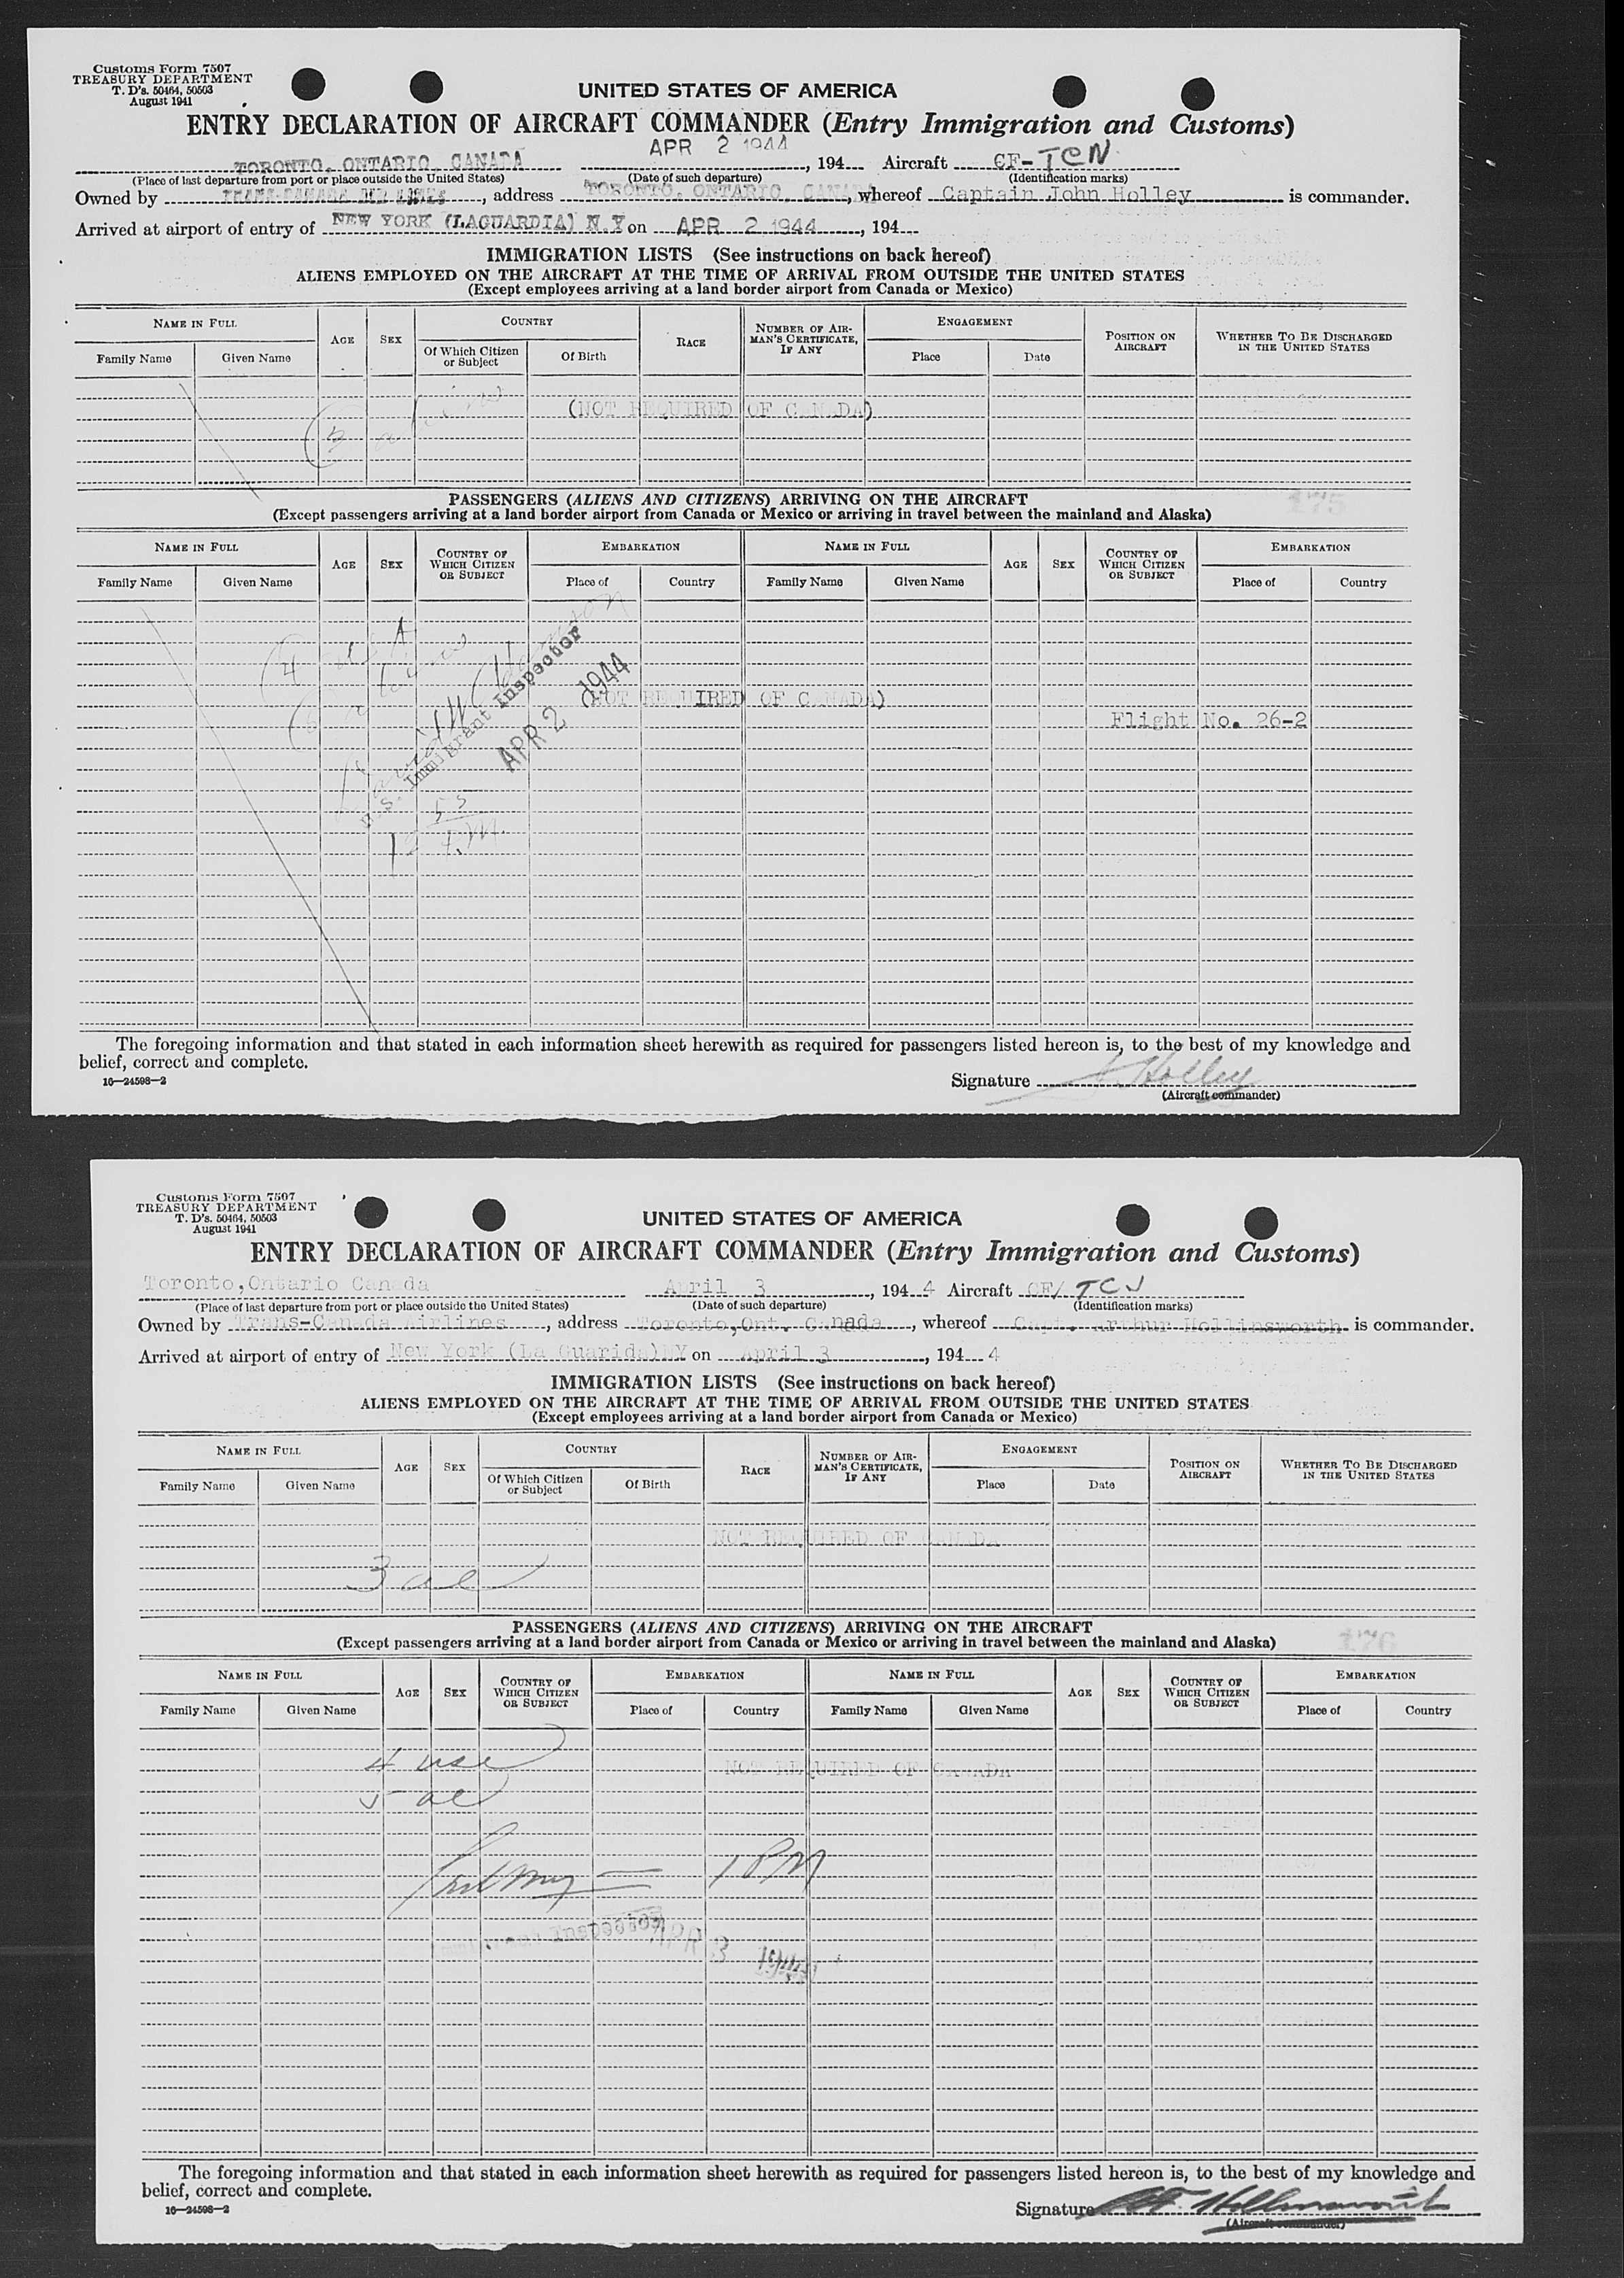 Customs Form 7507
TREASURY DEPARTMENT
T. D's. 50464, 50503
August 1941
UNITED STATES OF AMERICA
ENTRY DECLARATION OF AIRCRAFT COMMANDER (Entry Immigration and Customs)
TORONTO, ONTARIO, CANADA APR 2 1944, 194 Aircraft CF-TCN
(Place of last departure from port or place outside the United States) (Date of such departure) (Identification marks)
Owned by TRANS-CANADA AIR LINES, address TORONTO, ONTARIO, CANADA, whereof Captain John Holley is commander.
Arrived at airport of entry of NEW YORK (LAGUARDIA) N.Y on APR 2 1944, 194
IMMIGRATION LISTS (See instructions on back hereof)
ALIENS EMPLOYED ON THE AIRCRAFT AT THE TIME OF ARRIVAL FROM OUTSIDE THE UNITED STATES
(Except employees arriving at a land border airport from Canada or Mexico)
NAME IN FULL AGE SEX COUNTRY RACE NUMBER OF AIRMAN'S CERTIFICATE, IF ANY ENGAGEMENT POSITION ON AIRCRAFT WHETHER TO BE DISCHARGED IN THE UNITED STATES
Family Name Given Name Of Which Citizen or Subject Of Birth Place Date
(NOT REQUIRED OF CANADA)
3
PASSENGERS (ALIENS AND CITIZENS) ARRIVING ON THE AIRCRAFT
175
(Except passengers arriving at a land border airport from Canada or Mexico or arriving in travel between the mainland and Alaska)
NAME IN FULL AGE SEX COUNTRY OF WHICH CITIZEN OR SUBJECT EMBARKATION NAME IN FULL AGE SEX COUNTRY OF WHICH CITIZEN OR SUBJECT EMBARKATION
Family Name Given Name Place of Country Family Name Given Name Place of Country
4 USA
(NOT REQUIRED OF CANADA)
Flight No. 26-2
U.S. Immigrant Inspector
APR 2 1944
55
P.M.
The foregoing information and that stated in each information sheet herewith as required for passengers listed hereon is, to the best of my knowledge and
belief, correct and complete.
16—24598-2
Signature J. Holley
(Aircraft commander)
Customs Form 7507
TREASURY DEPARTMENT
T. D's. 50464, 50503
August 1941
UNITED STATES OF AMERICA
ENTRY DECLARATION OF AIRCRAFT COMMANDER (Entry Immigration and Customs)
Toronto, Ontario Canada April 3, 194 4 Aircraft CF/ TCJ
(Place of last departure from port or place outside the United States) (Date of such departure) (Identification marks)
Owned by Trans-Canada Airlines, address Toronto, Ont. Canada, whereof Capt. Arthur Hollinsworth is commander.
Arrived at airport of entry of New York (La Guarida) NY on April 3, 194 4
IMMIGRATION LISTS (See instructions on back hereof)
ALIENS EMPLOYED ON THE AIRCRAFT AT THE TIME OF ARRIVAL FROM OUTSIDE THE UNITED STATES
(Except employees arriving at a land border airport from Canada or Mexico)
NAME IN FULL AGE SEX COUNTRY RACE NUMBER OF AIRMAN'S CERTIFICATE, IF ANY ENGAGEMENT POSITION ON AIRCRAFT WHETHER TO BE DISCHARGED IN THE UNITED STATES
Family Name Given Name Of Which Citizen or Subject Of Birth Place Date
NOT REQUIRED OF CANADA
3 al
PASSENGERS (ALIENS AND CITIZENS) ARRIVING ON THE AIRCRAFT
176
(Except passengers arriving at a land border airport from Canada or Mexico or arriving in travel between the mainland and Alaska)
NAME IN FULL AGE SEX COUNTRY OF WHICH CITIZEN OR SUBJECT EMBARKATION NAME IN FULL AGE SEX COUNTRY OF WHICH CITIZEN OR SUBJECT EMBARKATION
Family Name Given Name Place of Country Family Name Given Name Place of Country
4 usc
NOT REQUIRED OF CANADA
5 al
1 PM
Inspector APR 3 1944
The foregoing information and that stated in each information sheet herewith as required for passengers listed hereon is, to the best of my knowledge and
belief, correct and complete.
16—24598-2
Signature
(Aircraft commander)